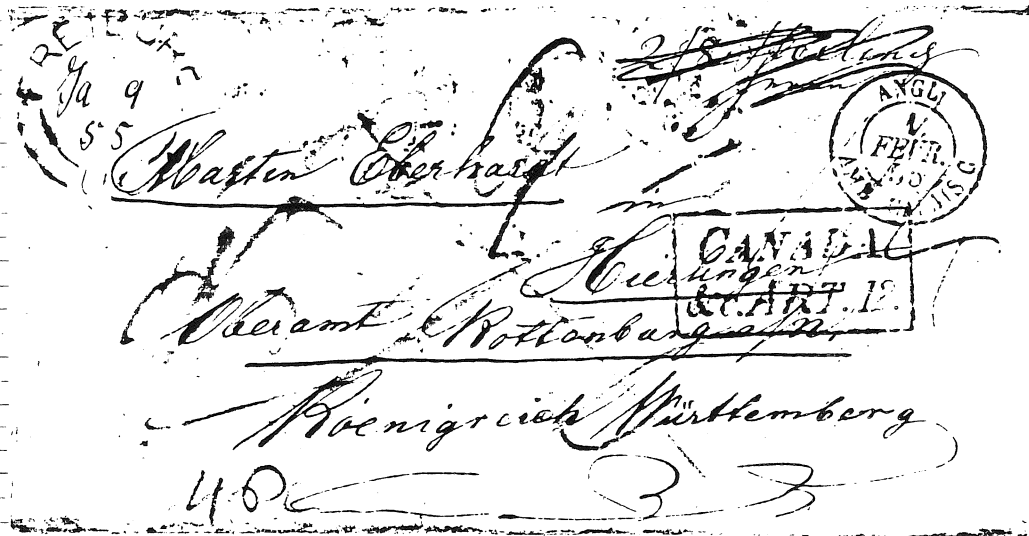 Ja 9
55
ANGL.
2
FEVR.
55
Marten Eberhardt
in
Hierlingen
CANADA
&c. ART. 12.
Oberamt Rottenburg a/N.
Koenigreich Württemberg
48